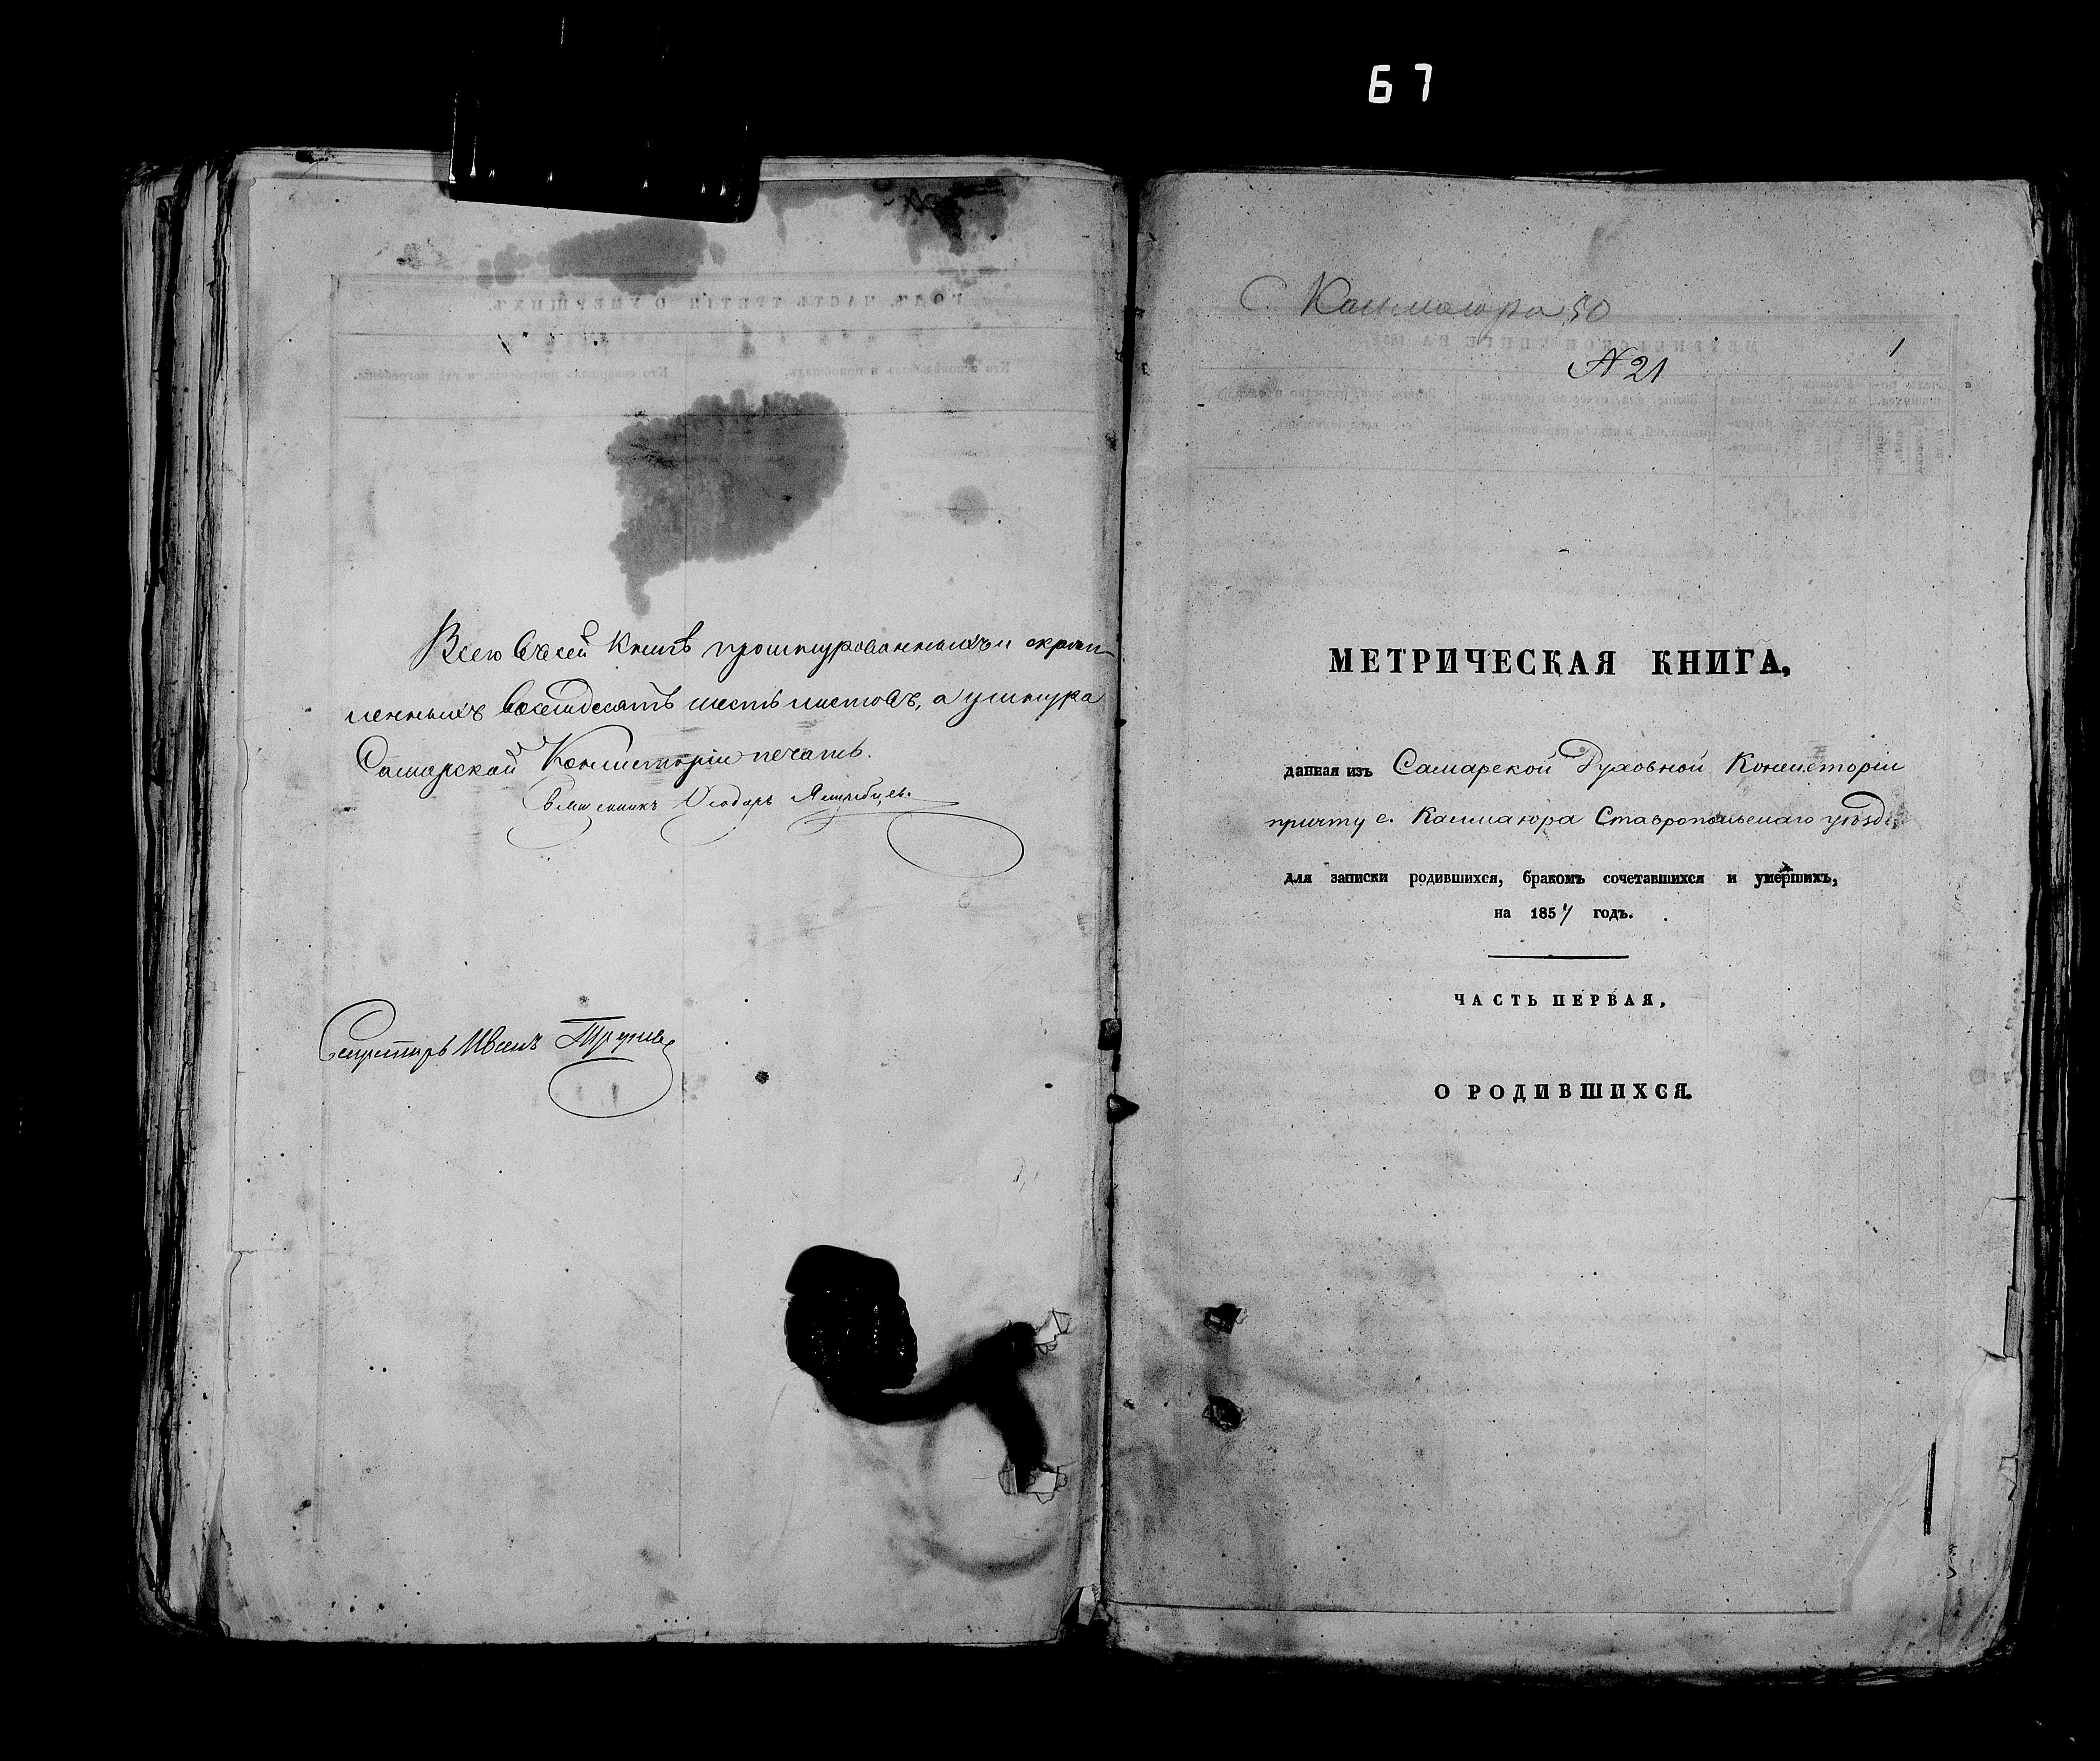 67
Всего въ сей книгѣ прошнурованныхъ и скрѣп
ленныхъ восемьдесятъ шесть листовъ, а у шнура
Самарской Консисторіи печать.
Священникъ
Секретарь Иванъ
С. Калмаюра 50
N 21
1
МЕТРИЧЕСКАЯ КНИГА,
данная изъ Самарской Духовной Консисторіи
причту с. Калмаюра Ставропольскаго уѣзда
для записки родившихся, бракомъ сочетавшихся и умершихъ,
на 1857 годъ.
ЧАСТЬ ПЕРВАЯ,
О РОДИВШИХСЯ.